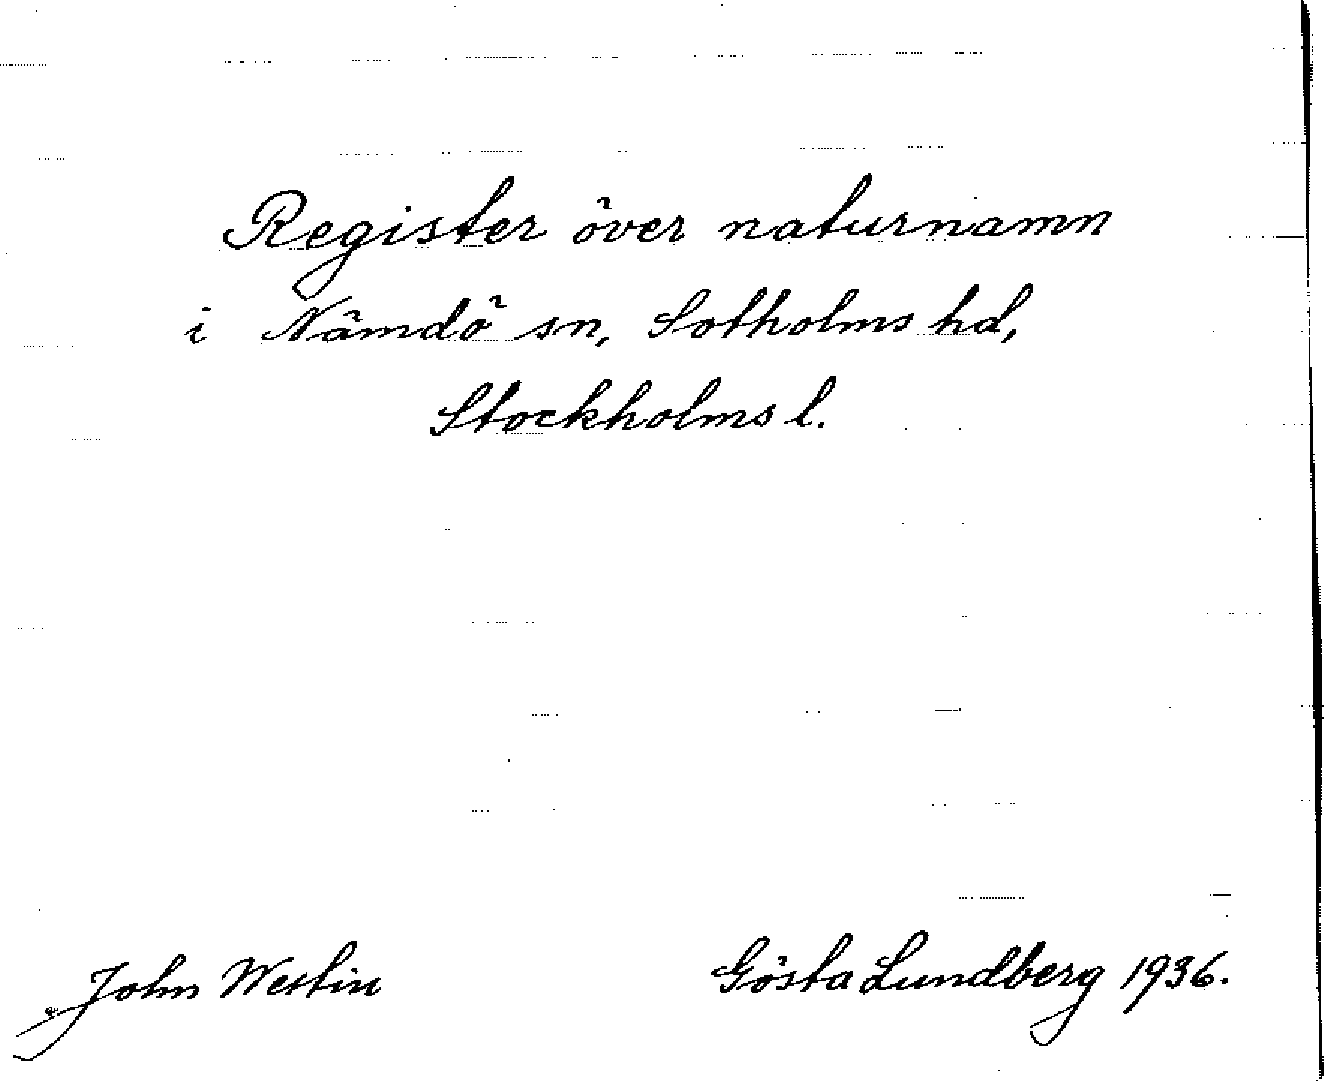 Register över naturnamn
i Nämdö sn, Sotholms hd,
Stockholms l.
John Westin
Gösta Lundberg 1936.